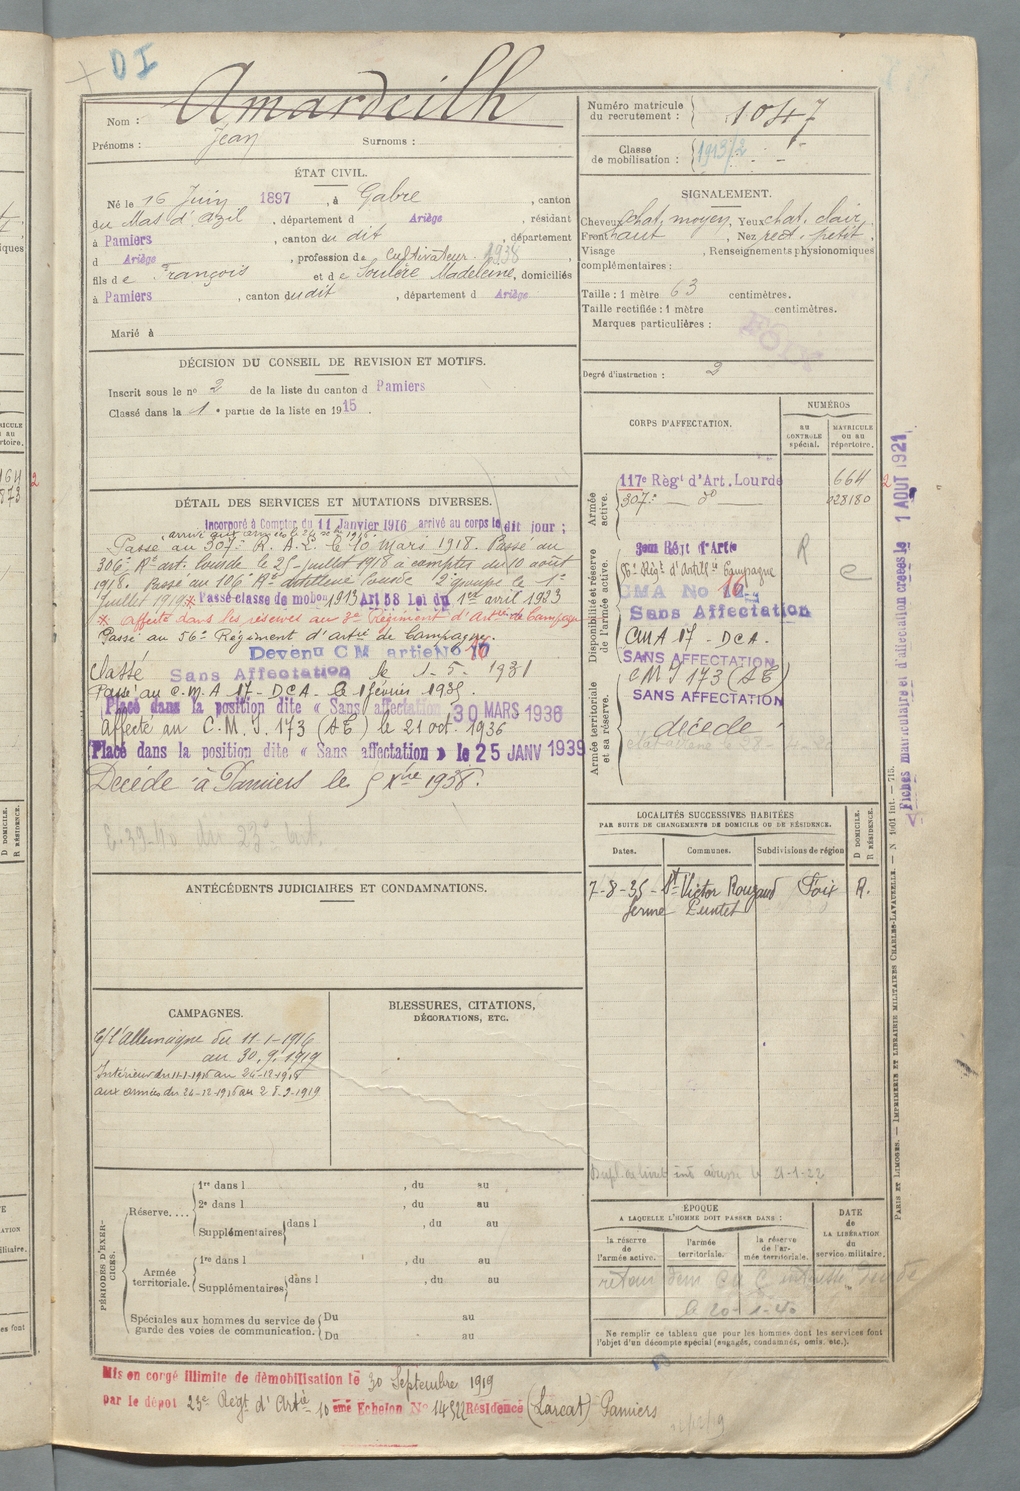 DI
Nom : Amardeilh
Prénoms : Jean Surnoms :
ÉTAT CIVIL.
Né le 16 Juin 1897, à Gabre, canton
du Mas d'Azil, département d Ariège, résidant
à Pamiers, canton du dit, département
d Ariège, profession de Cultivateur 1938
fils de François et de Soulère Madeleine, domiciliés
à Pamiers, canton du dit, département d Ariège
Marié à
DÉCISION DU CONSEIL DE REVISION ET MOTIFS.
Inscrit sous le n° 2 de la liste du canton d Pamiers
Classé dans la 1e partie de la liste en 1915.
DÉTAIL DES SERVICES ET MUTATIONS DIVERSES.
Incorporé à Compter du 11 Janvier 1916 arrivé au corps le dit jour ;
arrivé aux armées le
Passé au 307e R. A. L. le 10 Mars 1918. Passé au
306e Rt art. lourde le 25 juillet 1918 à compter du 10 août
1918. Passé au 106e Rt artillerie lourde 2e groupe le 1er
Juillet 1919 * Passé classe de mobon 1913 Art 58 Loi du 1er avril 1923
* Affecté dans les réserves au 3e Régiment d'Artie de Campagne
Passé au 56e Régiment d'artie de Campagne.
Devenu CM artie No
Classé Sans Affectation le 1-5-1931
Passé au C.M.A 17 - DCA. le 1 février 1935.
Placé dans la position dite « Sans affectation 30 MARS 1936
Affecté au C.M.I. 173 (AE) le 21 oct. 1936
Placé dans la position dite « Sans affectation » le 25 JANV 1939
Décédé à Pamiers le 5 Xbre 1938.
ANTÉCÉDENTS JUDICIAIRES ET CONDAMNATIONS.
CAMPAGNES.
C/ l'Allemagne du 11-1-1916
au 30.9.1919
Intérieur du 11-1-1916 au 24-12-1916
aux armées du 24-12-1916 au 28-9-1919
BLESSURES, CITATIONS,
DÉCORATIONS, ETC.
PÉRIODES D'EXERCICES.
Réserve....
1re dans l , du au
2e dans l , du au
Supplémentaires dans l , du au
Armée territoriale.
1re dans l , du au
Supplémentaires dans l , du au
Spéciales aux hommes du service de
garde des voies de communication.
Du au
Du au
Mis en congé illimité de démobilisation le 30 Septembre 1919
par le dépôt 23e Régt d'Artie 10 ème Echelon No 14522 Résidence (Larcat) Pamiers
Numéro matricule
du recrutement : 1047
Classe
de mobilisation : 1913/2
SIGNALEMENT.
Cheveux chat. moyen, Yeux chat. clair
Front haut, Nez rect. petit,
Visage , Renseignements physionomiques
complémentaires :
Taille : 1 mètre 63 centimètres.
Taille rectifiée : 1 mètre centimètres.
Marques particulières :
FOIX
Degré d'instruction : 2
CORPS D'AFFECTATION.
NUMÉROS
AU CONTROLE spécial.
MATRICULE ou au répertoire.
Armée active.
117e Règt d'Art. Lourde 664
307e — do — 028180
Disponibilité et réserve de l'armée active.
3eme Régt d'Artie R
56e Régt d'Artillie Campagne e
CMA No 16
Sans Affectation
CMA 17 - DCA.
SANS AFFECTATION
Armée territoriale et sa réserve.
CMI 173 (AE)
SANS AFFECTATION
décédé
LOCALITÉS SUCCESSIVES HABITÉES
PAR SUITE DE CHANGEMENTS DE DOMICILE OU DE RÉSIDENCE.
Dates. Communes. Subdivisions de région D DOMICILE. R RÉSIDENCE.
7-8-35 - St Victor Rouzaud Foix R.
ferme
ÉPOQUE
A LAQUELLE L'HOMME DOIT PASSER DANS :
la réserve de l'armée active.
l'armée territoriale.
la réserve de l'armée territoriale.
DATE de LA LIBÉRATION du service militaire.
le 20-1-40
Ne remplir ce tableau que pour les hommes dont les services font
l'objet d'un décompte spécial (engagés, condamnés, omis, etc.).
Fiches matriculaire et d'affectation créées le 1 AOUT 1921
PARIS ET LIMOGES. — IMPRIMERIE ET LIBRAIRIE MILITAIRES CHARLES-LAVAUZELLE. — N° 1601 Int. — 715.